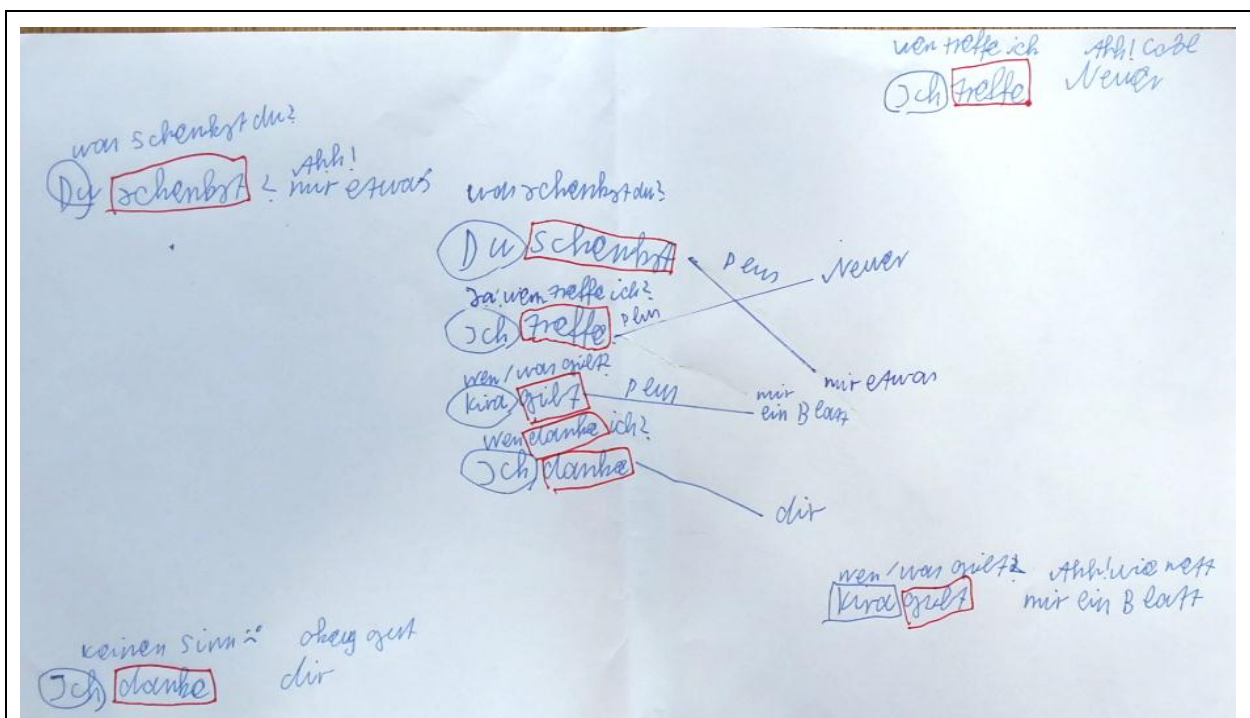 wen treffe ich Ahh! Cool
Ich treffe Neuer
was schenkst du?
Du schenkst Ahh! mir etwas
was schenkst du?
Du schenkst Neuer
Ja wem treffe ich?
Ich treffe
wen / was gibt? mir etwas
Kira gibt mir ein Blatt
wen danke ich?
Ich danke
dir
wen / was gibt? Ahh! wie nett
Kira gibt mir ein Blatt
keinen Sinn okay gut
Ich danke dir